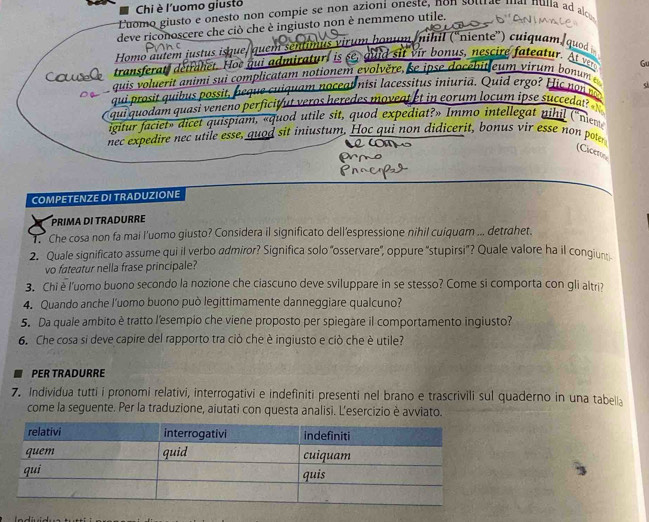 Chi è l'uomo giusto
L'uomo giusto e onesto non compie se non azioni oneste, non sottrae mai nulla ad
deve riconoscere che ciò che è ingiusto non è nemmeno utile.
Homo autem justus isque, quem sentimus virum bonum, nihil ("niente") cuiquam, quod in
transferat detrahet. Hoc qui admiratur, is se, quid sit vir bonus, nescire fateatur. At vero
quis voluerit animi sui complicatam notionem evolvere, se ipse doceat eum virum bonum
qui prosit quibus possit, neque cuiquam noceat nisi lacessitus iniuriā. Quid ergo? Hic non
qui quodam quasi veneno perficit ut veros heredes moveat et in eorum locum ipse succedat?
igitur faciet» dicet quispiam, «quod utile sit, quod expediat?» Immo intellegat nihil ("niente
nec expedire nec utile esse, quod sit iniustum. Hoc qui non didicerit, bonus vir esse non poter
(Cicerone
COMPETENZE DI TRADUZIONE
PRIMA DI TRADURRE
1. Che cosa non fa mai l'uomo giusto? Considera il significato dell'espressione nihil cuiquam ... detrahet.
2. Quale significato assume qui il verbo admiror? Significa solo "osservare", oppure "stupirsi"? Quale valore ha il congiunti-
vo fateatur nella frase principale?
3. Chi è l'uomo buono secondo la nozione che ciascuno deve sviluppare in se stesso? Come si comporta con gli altri?
4. Quando anche l'uomo buono può legittimamente danneggiare qualcuno?
5. Da quale ambito è tratto l'esempio che viene proposto per spiegare il comportamento ingiusto?
6. Che cosa si deve capire del rapporto tra ciò che è ingiusto e ciò che è utile?
PER TRADURRE
7. Individua tutti i pronomi relativi, interrogativi e indefiniti presenti nel brano e trascrivili sul quaderno in una tabella
come la seguente. Per la traduzione, aiutati con questa analisi. L'esercizio è avviato.
relativi interrogativi indefiniti
quem quid cuiquam
qui quis